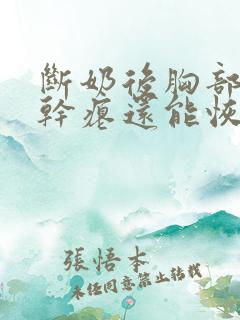 斷奶後胸部
幹癟還能恢
張悟本
未經同意禁止轉載